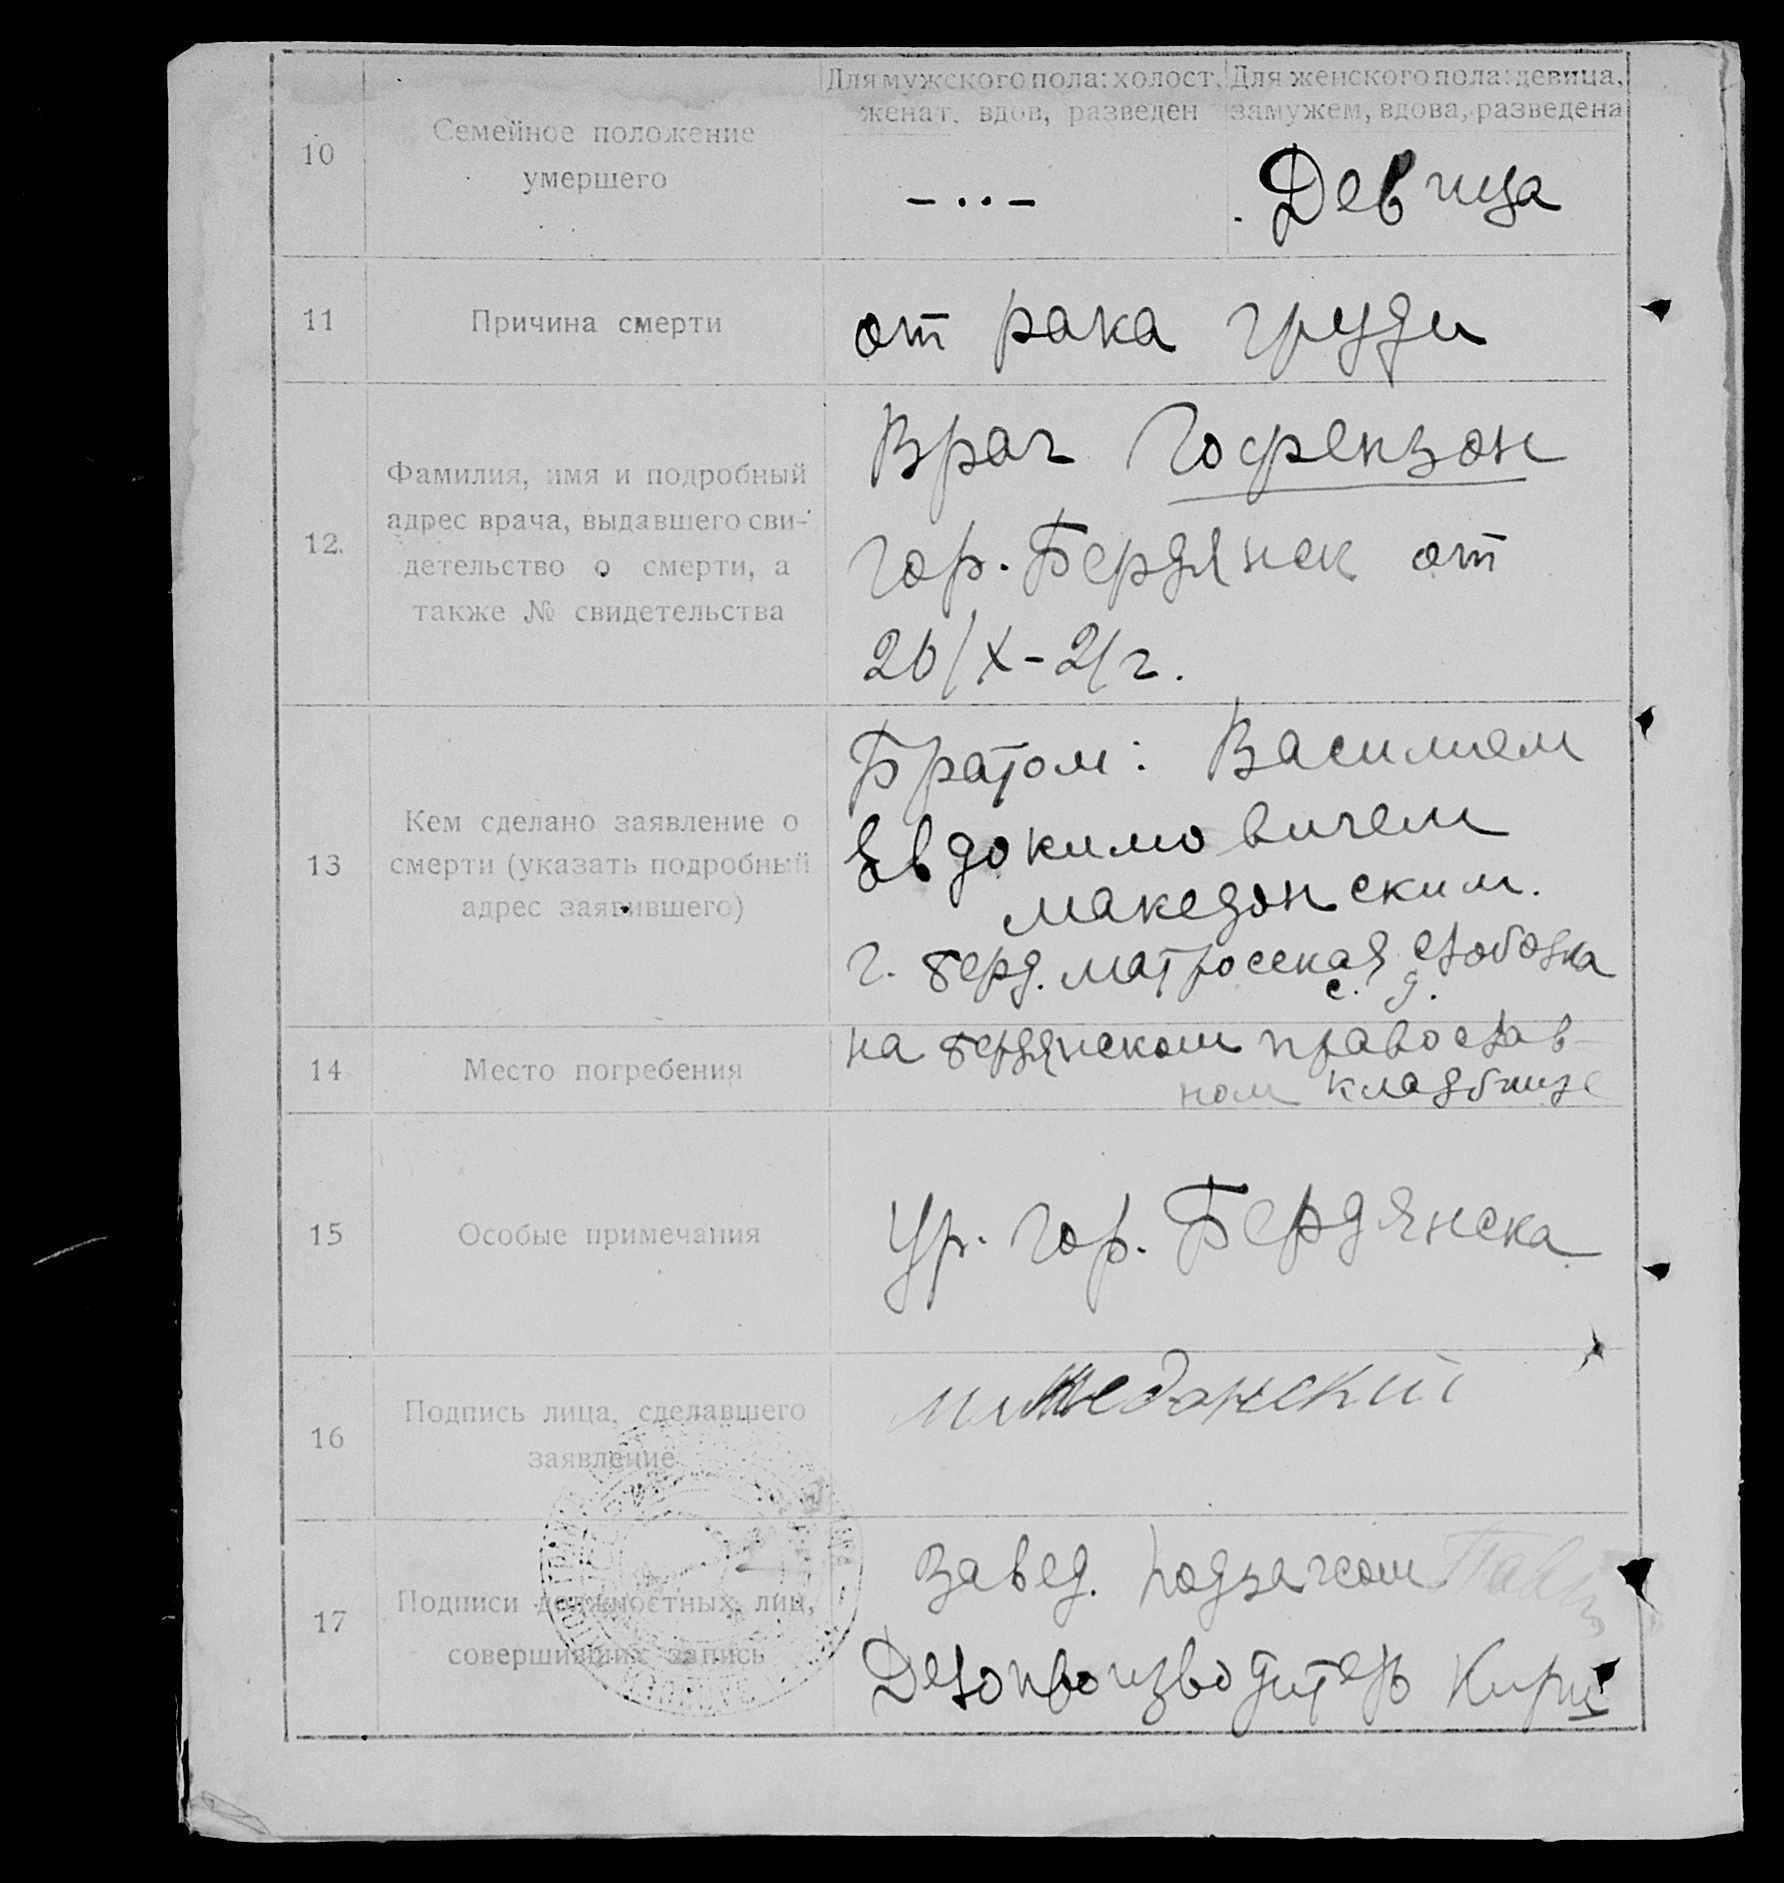 10
Семейное положение
умершего
Для мужского пола: холост,
женат, вдов, разведен
Для женского пола: девица,
замужем, вдова, разведена
– · · –
Девица
11
Причина смерти
от рака груди
12.
Фамилия, имя и подробный
адрес врача, выдавшего сви-
детельство о смерти, а
также № свидетельства
Врач Гофензон
гор. Бердянск от
26/X-21г.
13
Кем сделано заявление о
смерти (указать подробный
адрес заявившего)
Братом: Василием
Евдокимовичем
Македонским.
г. Берд. Матросская слободка
с. д.
14
Место погребения
на Бердянском православ-
ном кладбище
15
Особые примечания
Ур. гор. Бердянска
16
Подпись лица, сделавшего
заявление
Македонский
17
Подписи должностных лиц,
совершивших запись
Завед. подзагсом
Делопроизводитель